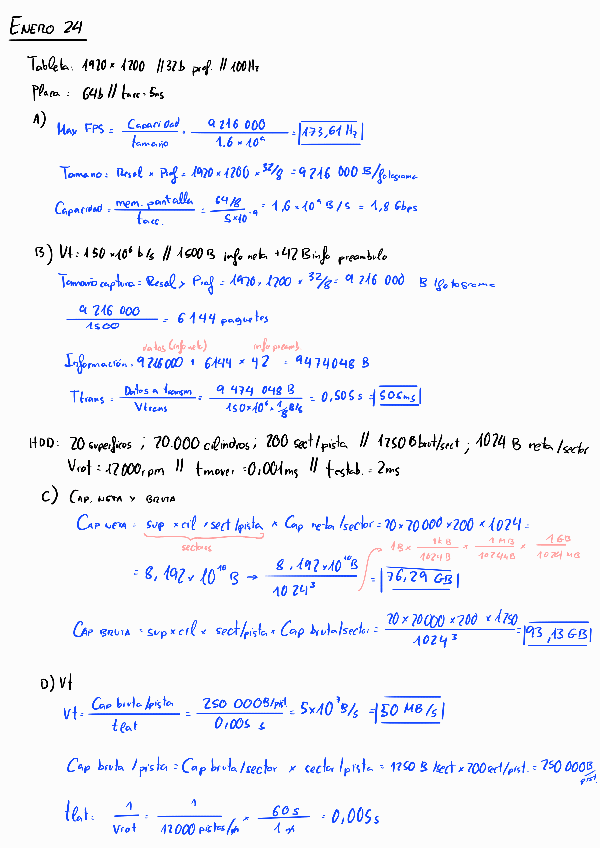 ENERO 24
Tableta: 1920 × 1200 // 32b prof. // 100Hz
Placa: 64b // tacc = 5ns
A) Max FPS = Capacidad / tamaño = 9 216 000 / 1.6 × 10⁹ = 173,61 Hz
Tamano: Resol × Prof = 1920 × 1200 × 32/8 = 9 216 000 B/fotograma
Capacidad = mem. pantalla / tacc. = 64/8 / 5×10⁻⁹ = 1,6 × 10⁹ B/s = 1,8 Gbps
B) Vt = 150 × 10⁶ b/s // 1500 B info neta + 42 B info preambulo
Tamaño captura = Resol × Prof = 1920 · 1200 × 32/8 = 9 216 000 B/fotograma
9 216 000 / 1500 = 6144 paquetes
datos (info neta) info preamb.
Información: 9216000 + 6144 × 42 = 9474048 B
Ttrans = Datos a transm / Vtrans = 9 474 048 B / 150×10⁶ × 1/8 B/s = 0,505 s = 505ms
HDD: 20 superficies ; 20.000 cilindros ; 200 sect/pista // 1250 B brut/sect ; 1024 B neta/sector
Vrot = 12000 rpm // tmover = 0,001ms // testab. = 2ms
C) CAP. NETA Y BRUTA
CAP NETA = sup × cil × sect/pista × Cap neta/sector = 20 × 20000 × 200 × 1024 =
sectores
1B × 1kB / 1024B × 1MB / 1024kB × 1GB / 1024MB
= 8,192 × 10¹⁰ B → 8,192×10¹⁰ B / 1024³ = 76,29 GB
CAP BRUTA = sup × cil × sect/pista × Cap bruta/sector = 20 × 20000 × 200 × 1250 / 1024³ = 93,13 GB
D) Vt
Vt = Cap bruta/pista / tlat = 250 000 B/pist / 0,005 s = 5×10⁷ B/s = 50 MB/s
Cap bruta /pista = Cap bruta/sector × sector/pista = 1250 B/sect × 200 sect/pist. = 250 000 B/pist.
tlat: 1 / Vrot = 1 / 12000 pistas/m × 60 s / 1 m = 0,005 s